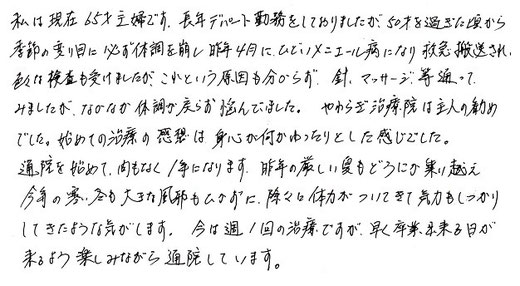 私は現在65才主婦です。長年デパート勤務をしておりましたが、50才を過ぎた頃から
季節の変り目に必ず体調を崩し昨年4月に、ひどいメニエール病になり救急搬送され、
色々な検査も受けましたが、これという原因も分からず、針、マッサージ等通って
みましたが、なかなか体調が戻らず悩んでいました。 やわらぎ治療院は主人の勧め
でした。始めての治療の感想は身心が何かゆったりとした感じでした。
通院を始めて、間もなく1年になります。昨年の厳しい夏もどうにか乗り越え
今年の寒い冬も大きな風邪もひかずに、除々に体力がついてきて気力もしっかり
してきたような気がします。 今は週1回の治療ですが、早く卒業出来る日が
来るよう楽しみながら通院しています。